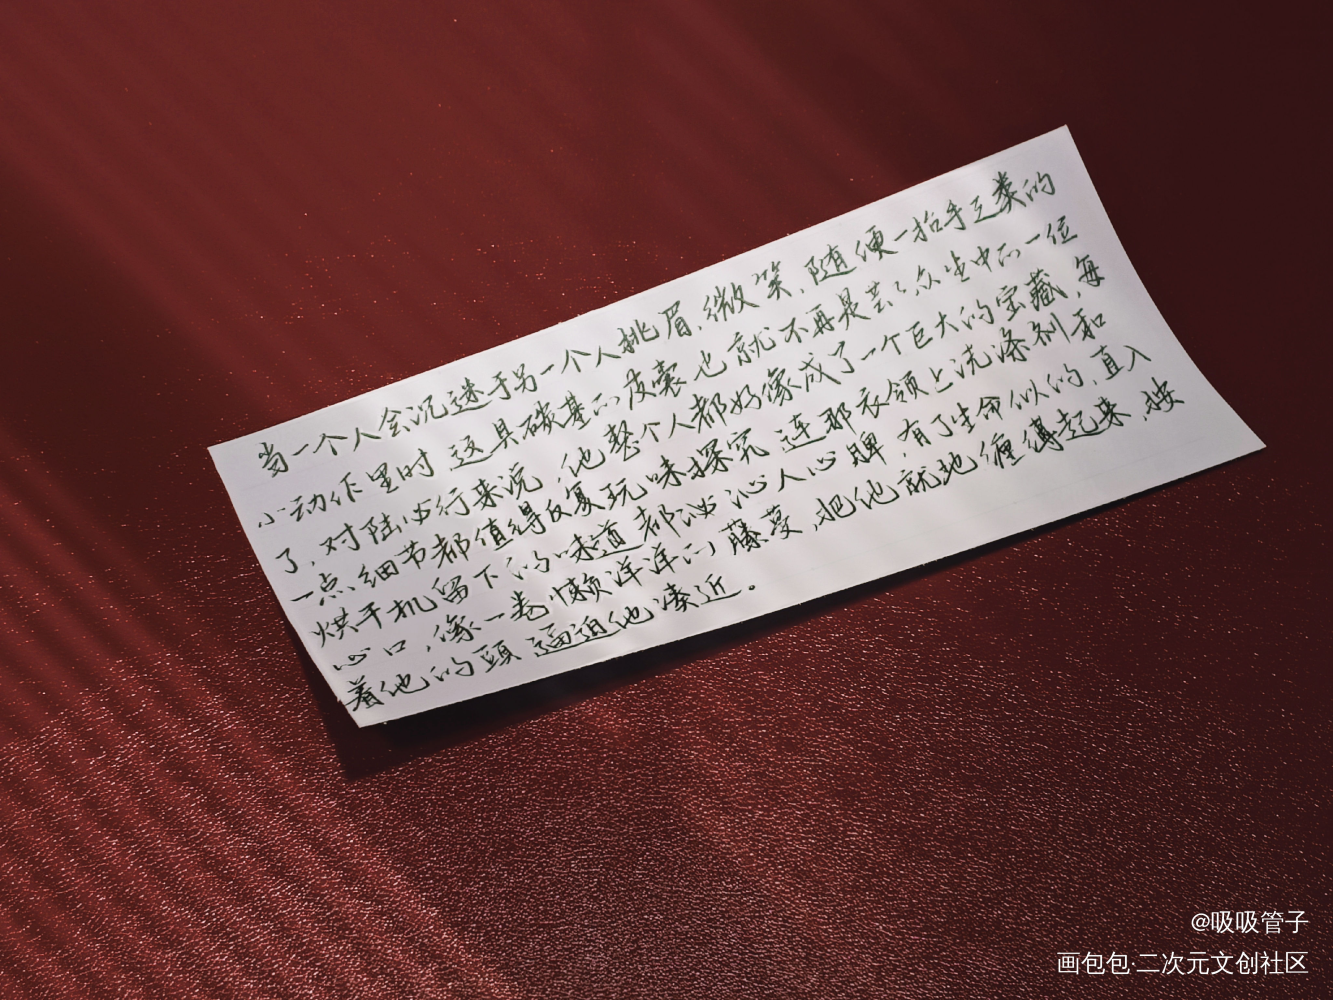 当一个人会沉迷于另一个人挑眉，微笑，随便一抬手之类的
小动作里时 这具碳基的皮囊也就不再是芸芸众生中的一位
了，对陆必行来说，他整个人都好像成了一个巨大的宝藏，每
一点细节都值得反复玩味探究 连那衣领上洗涤剂和
烘干机留下的味道都沁沁人心脾，有了生命似的，直入
心口，像一卷懒洋洋的藤蔓，把他就地缠缚起来，按
着他的头逼迫他凑近。
@吸吸管子
画包包·二次元文创社区